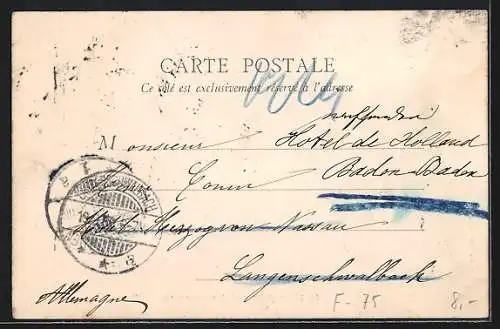 CARTE POSTALE
Ce côté est exclusivement réservé à l'adresse
Monsieur
Hotel de Holland
Conin
Baden-Baden
Herzog von Nassau
Langenschwalbach
Allemagne
F-75
8,-